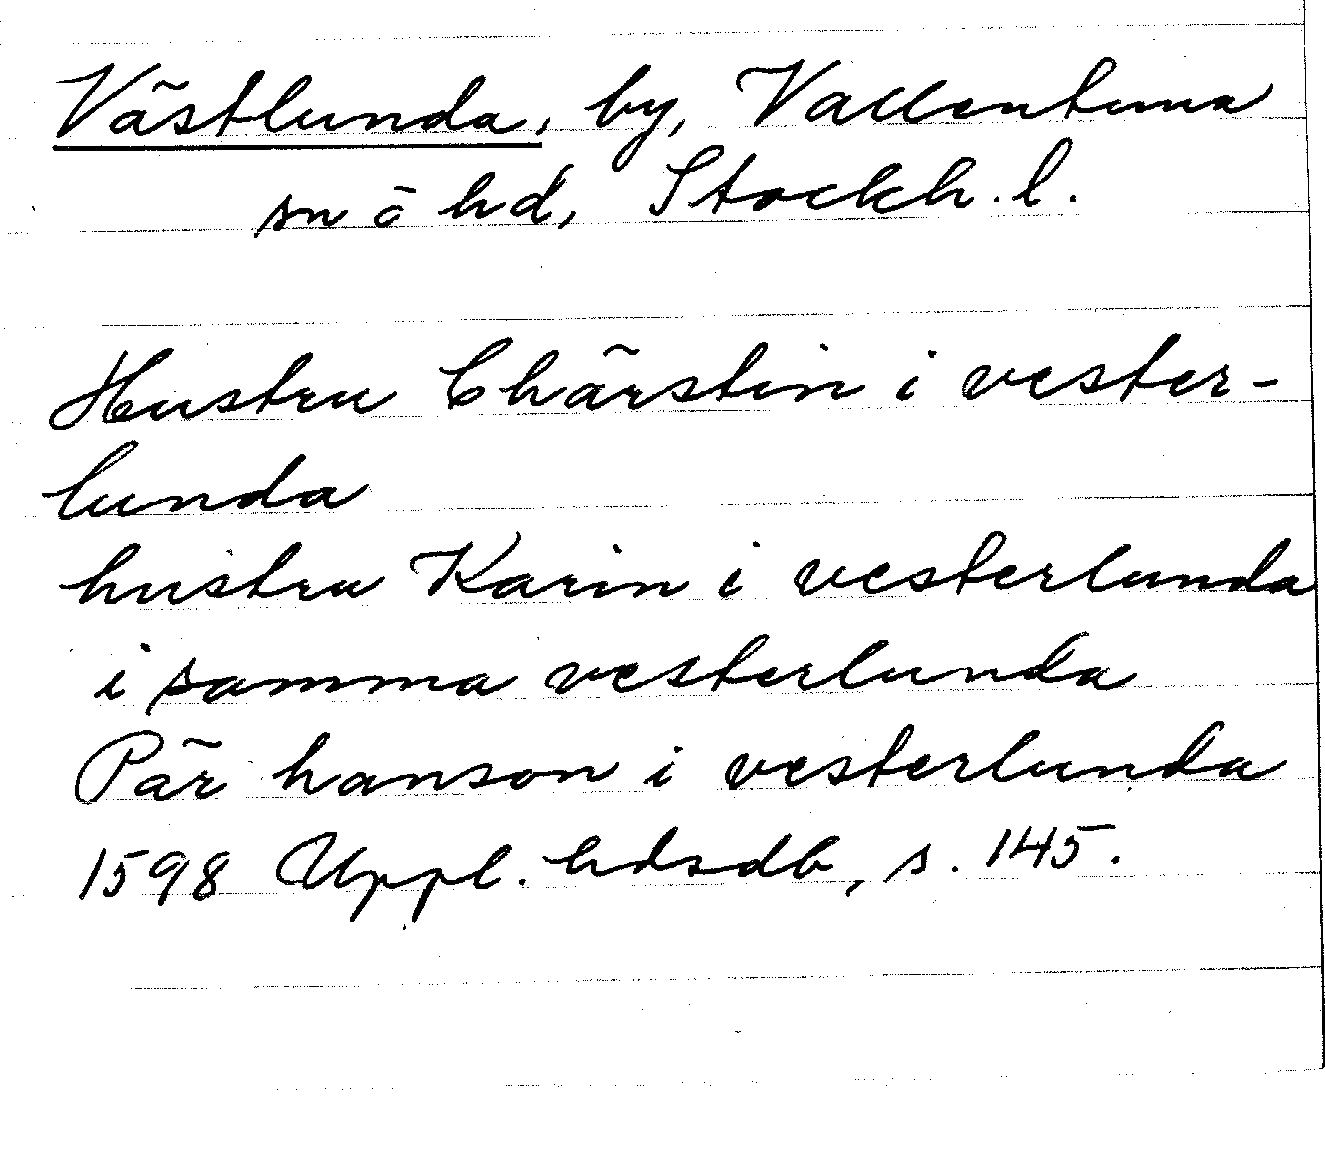 Västlunda, by, Vallentuna
sn ō hd, Stockh. l.
Hustru Chärstin i vester-
lunda
hustru Karin i vesterlunda
i samma vesterlunda
Pär hanson i vesterlunda
1598 Uppl. hdsdb, s. 145.